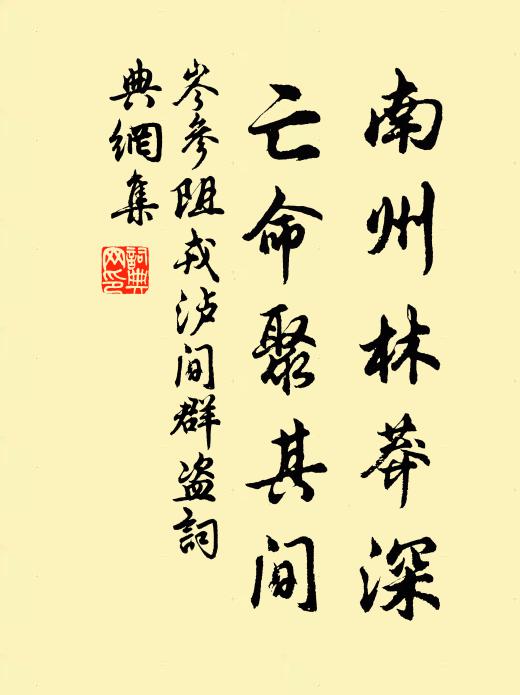 南州林莽深
亡命聚其间
岑參阻戎泸间群盗詞
典網集
詞典
网印